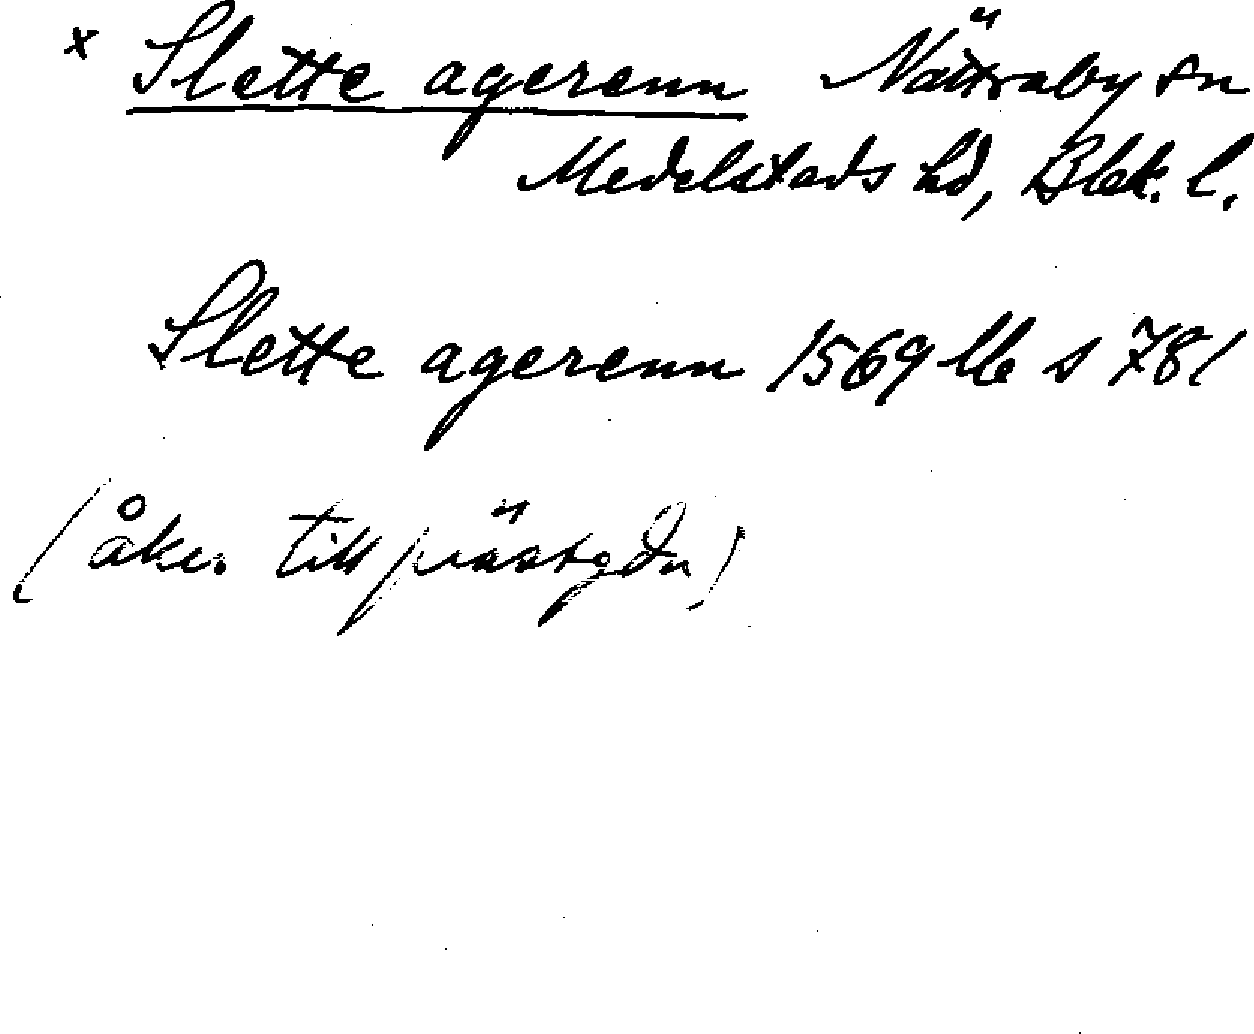 x Slette agerenn Nättraby sn
Medelstads hd, Blek. l.
Slette agerenn 1569 Lb s 781
(åker till prästgdn)